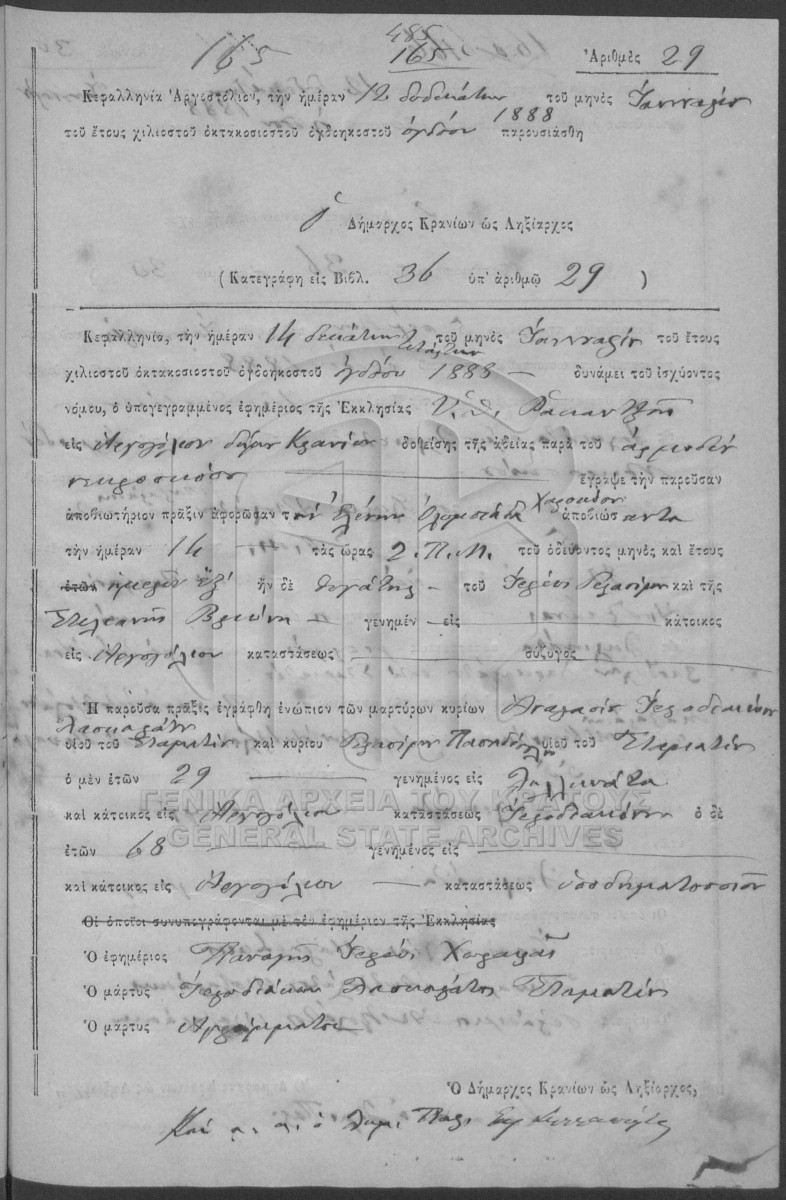 485
165 165 Ἀριθμὸς 29
Κεφαλληνία Ἀργοστόλιον, τὴν ἡμέραν 12 δωδεκάτην τοῦ μηνὸς Ἰανουαρίου
τοῦ ἔτους χιλιοστοῦ ὀκτακοσιοστοῦ ὀγδοηκοστοῦ ὀγδόου 1888 παρουσιάσθη
ὁ Δήμαρχος Κρανίων ὡς Ληξίαρχος
(Κατεγράφη εἰς Βιβλ. 36 ὑπ' ἀριθμῷ 29 )
Κεφαλληνία, τὴν ἡμέραν 14 δεκάτην τετάρτην τοῦ μηνὸς Ἰανουαρίου τοῦ ἔτους
χιλιοστοῦ ὀκτακοσιοστοῦ ὀγδοηκοστοῦ ὀγδόου 1888 — δυνάμει τοῦ ἰσχύοντος
νόμου, ὁ ὑπογεγραμμένος ἐφημέριος τῆς Ἐκκλησίας
εἰς Ἀργοστόλιον δήμου Κρανίων δοθείσης τῆς ἀδείας παρὰ τοῦ ἁρμοδίου
νεκροσκόπου ἔγραψε τὴν παροῦσαν
ἀποβιωτήριον πρᾶξιν ἀφορῶσαν τ Ἑλένην ἀποβιώσαντα
τὴν ἡμέραν 14 τὰς ὥρας 2. Π.Μ. τοῦ ὁδεύοντος μηνὸς καὶ ἔτους
ἐτῶν ἡμερῶν ἕξ ἦν δὲ θυγάτηρ — τοῦ Ἱερέως Γερασίμου καὶ τῆς
Στυλιανῆς — γενημέν — εἰς κάτοικος
εἰς Ἀργοστόλιον καταστάσεως σύζυγος
Ἡ παροῦσα πρᾶξις ἐγράφθη ἐνώπιον τῶν μαρτύρων κυρίων Ἱεροδιακόνου
Λασκαράτου
υἱοῦ τοῦ Σταματίου καὶ κυρίου Γερασίμου υἱοῦ τοῦ Σταματίου
ὁ μὲν ἐτῶν 29 γενημένος εἰς
ΓΕΝΙΚΑ ΑΡΧΕΙΑ ΤΟΥ ΚΡΑΤΟΥΣ
καὶ κάτοικος εἰς Ἀργοστόλιον καταστάσεως Ἱεροδιακόνου ὁ δὲ
GENERAL STATE ARCHIVES
ἐτῶν 68 γενημένος εἰς
καὶ κάτοικος εἰς Ἀργοστόλιον — καταστάσεως ὑποδηματοποιοῦ
Οἱ ὁποῖοι συνυπογράφονται μὲ τὸν ἐφημέριον τῆς Ἐκκλησίας
Ὁ ἐφημέριος Παναγῆς Ἱερεὺς
Ὁ μάρτυς Ἱεροδιάκων Λασκαράτος Σταματίου
Ὁ μάρτυς Ἀγράμματος
Ὁ Δήμαρχος Κρανίων ὡς Ληξίαρχος,